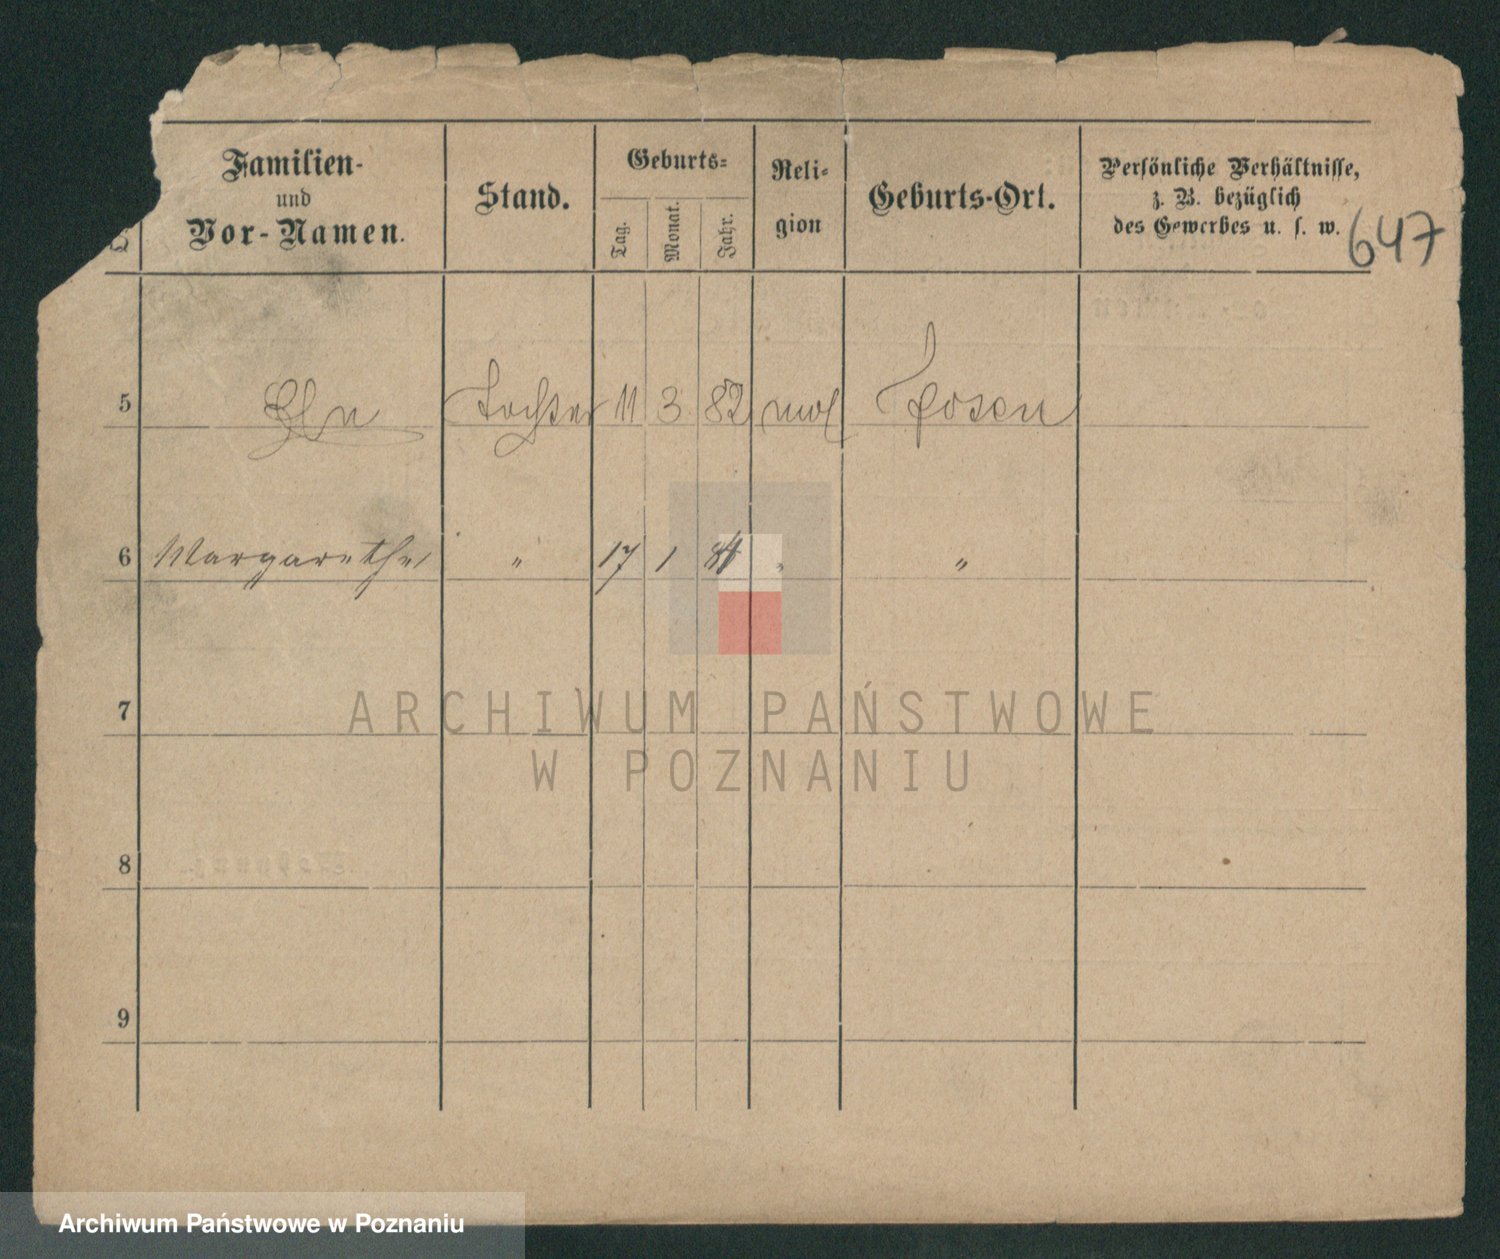 Familien- Stand. Geburts- Reli- Geburts-Ort. Persönliche Verhältnisse,
und z. B. bezüglich
Vor-Namen. Tag. Monat. Jahr. gion des Gewerbes u. s. w. 647
5 Tochter 11 3 82 Posen
6 Margarethe " 17 1 " "
7
8
9
ARCHIWUM PAŃSTWOWE
W POZNANIU
Archiwum Państwowe w Poznaniu